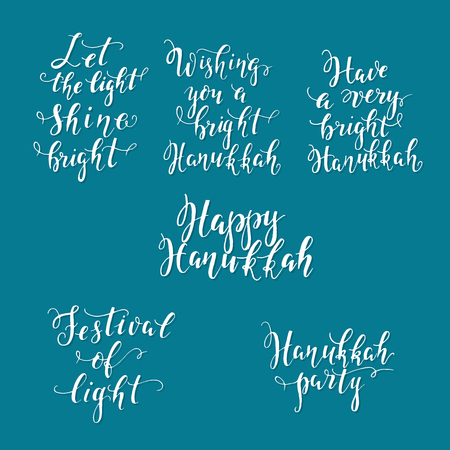 Let
the light
Shine
bright
Wishing
you a
bright
Hanukkah
Have
a very
bright
Hanukkah
Happy
Hanukkah
Festival
of
light
Hanukkah
party